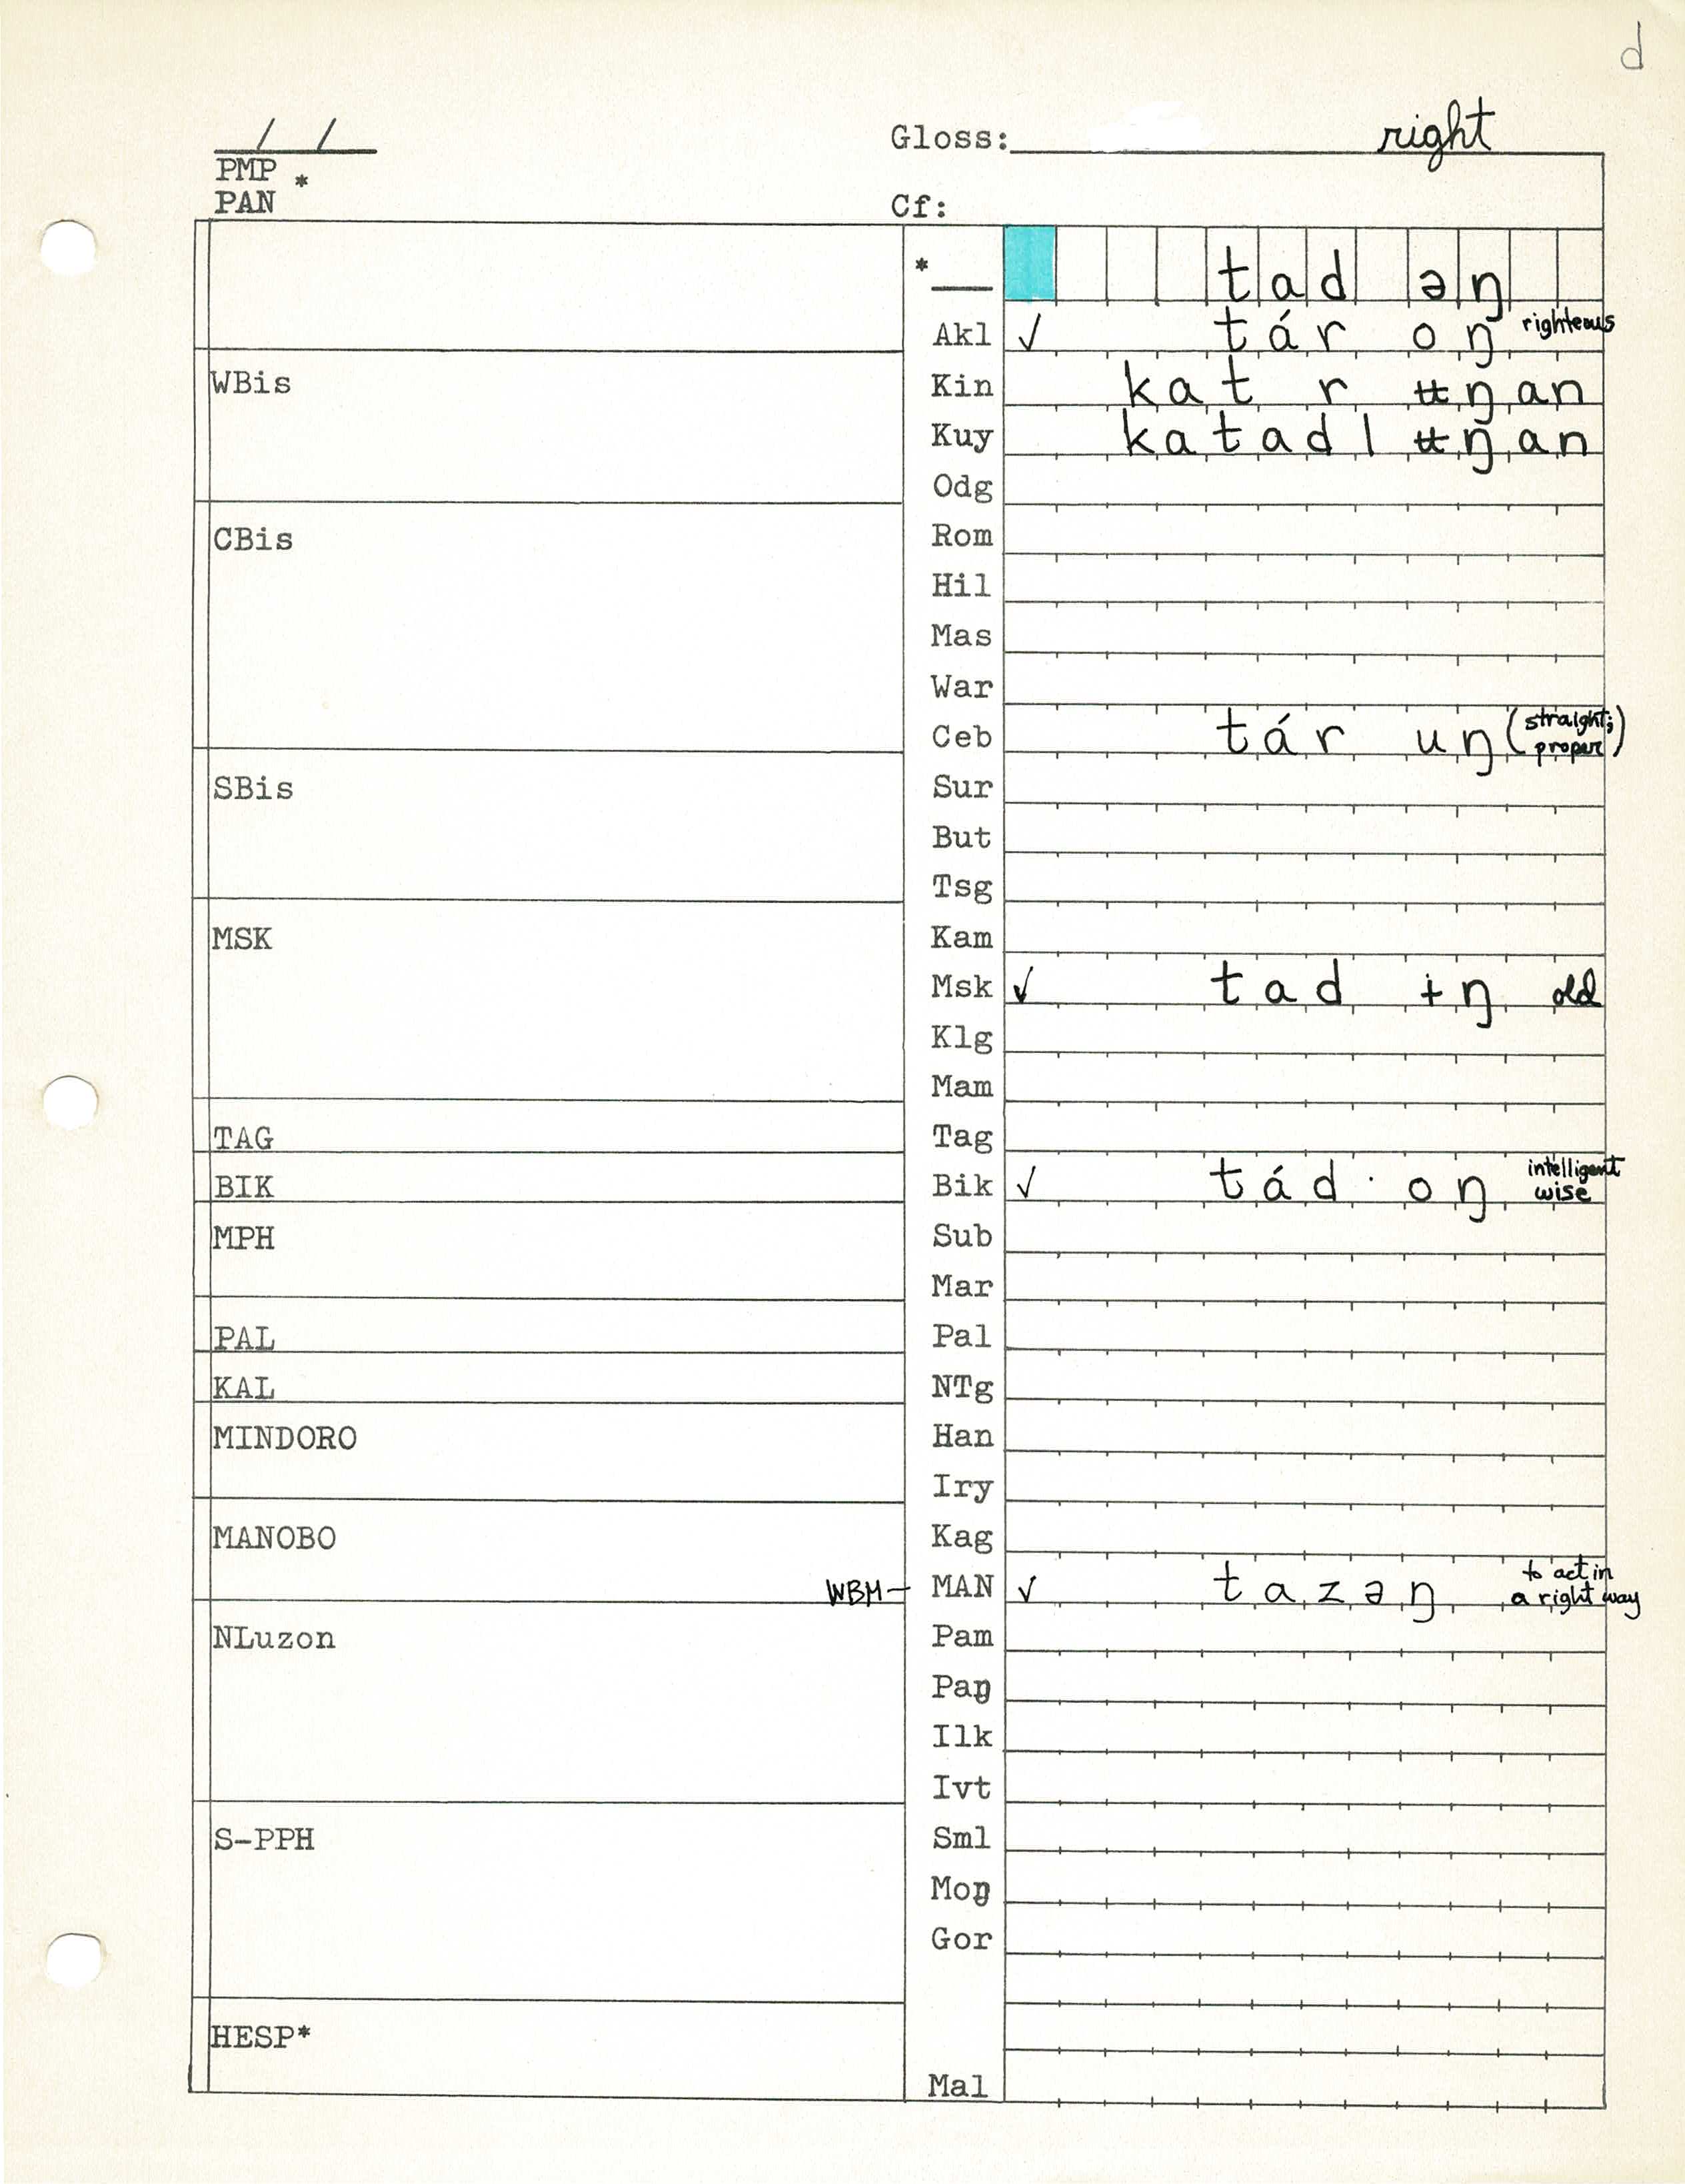 d
/ /
Gloss: right
PMP *
PAN
Cf:
* tad əŋ
Akl ✓ tár oŋ righteous
WBis
Kin kat r ʉŋan
Kuy katadl ʉŋan
Odg
CBis
Rom
Hil
Mas
War
Ceb tár uŋ (straight; proper)
SBis
Sur
But
Tsg
MSK
Kam
Msk ✓ tad ɨŋ old
Klg
Mam
TAG
Tag
BIK
Bik ✓ tád · oŋ intelligent wise
MPH
Sub
Mar
PAL
Pal
KAL
NTg
MINDORO
Han
Iry
MANOBO
Kag
WBM— MAN ✓ tazəŋ to act in a right way
NLuzon
Pam
Paŋ
Ilk
Ivt
S-PPH
Sml
Moŋ
Gor
HESP*
Mal